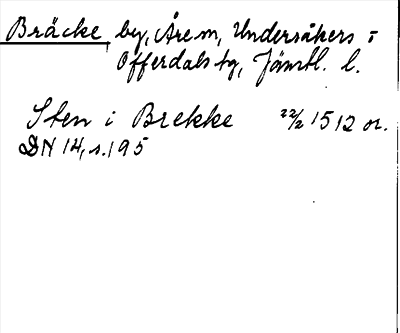 Bräcke, by, Åre sn, Undersåkers o
Offerdals tg, Jämtl. l.
Sten i Brekke 22/2 1512 or.
DN 14, s. 195